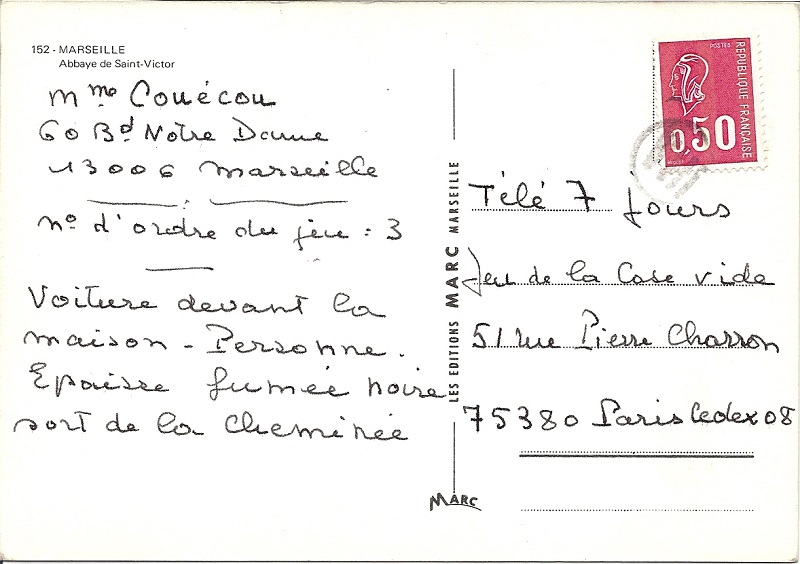 152 - MARSEILLE
Abbaye de Saint-Victor
Mme Couécou
60 Bd Notre Dame
13006 Marseille
no d'ordre du jeu : 3
Voiture devant la
maison - Personne.
Epaisse fumée noire
sort de la cheminée
LES EDITIONS MARC MARSEILLE
MARC
POSTES
REPUBLIQUE FRANÇAISE
0,50
Télé 7 jours
Jeu de la Case vide
51 rue Pierre Charron
75380 Paris Cedex 08